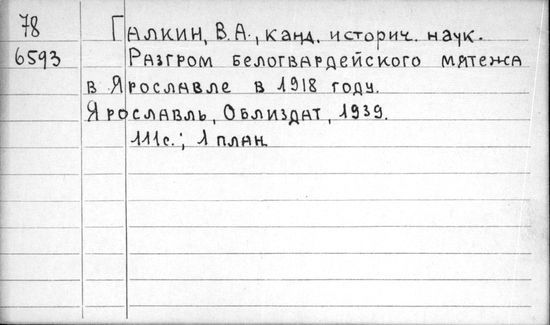 78 Галкин, В.А., канд. историч. наук.
6593 Разгром белогвардейского мятежа
в Ярославле в 1918 году.
Ярославль, Облиздат, 1939.
111с.; 1 план